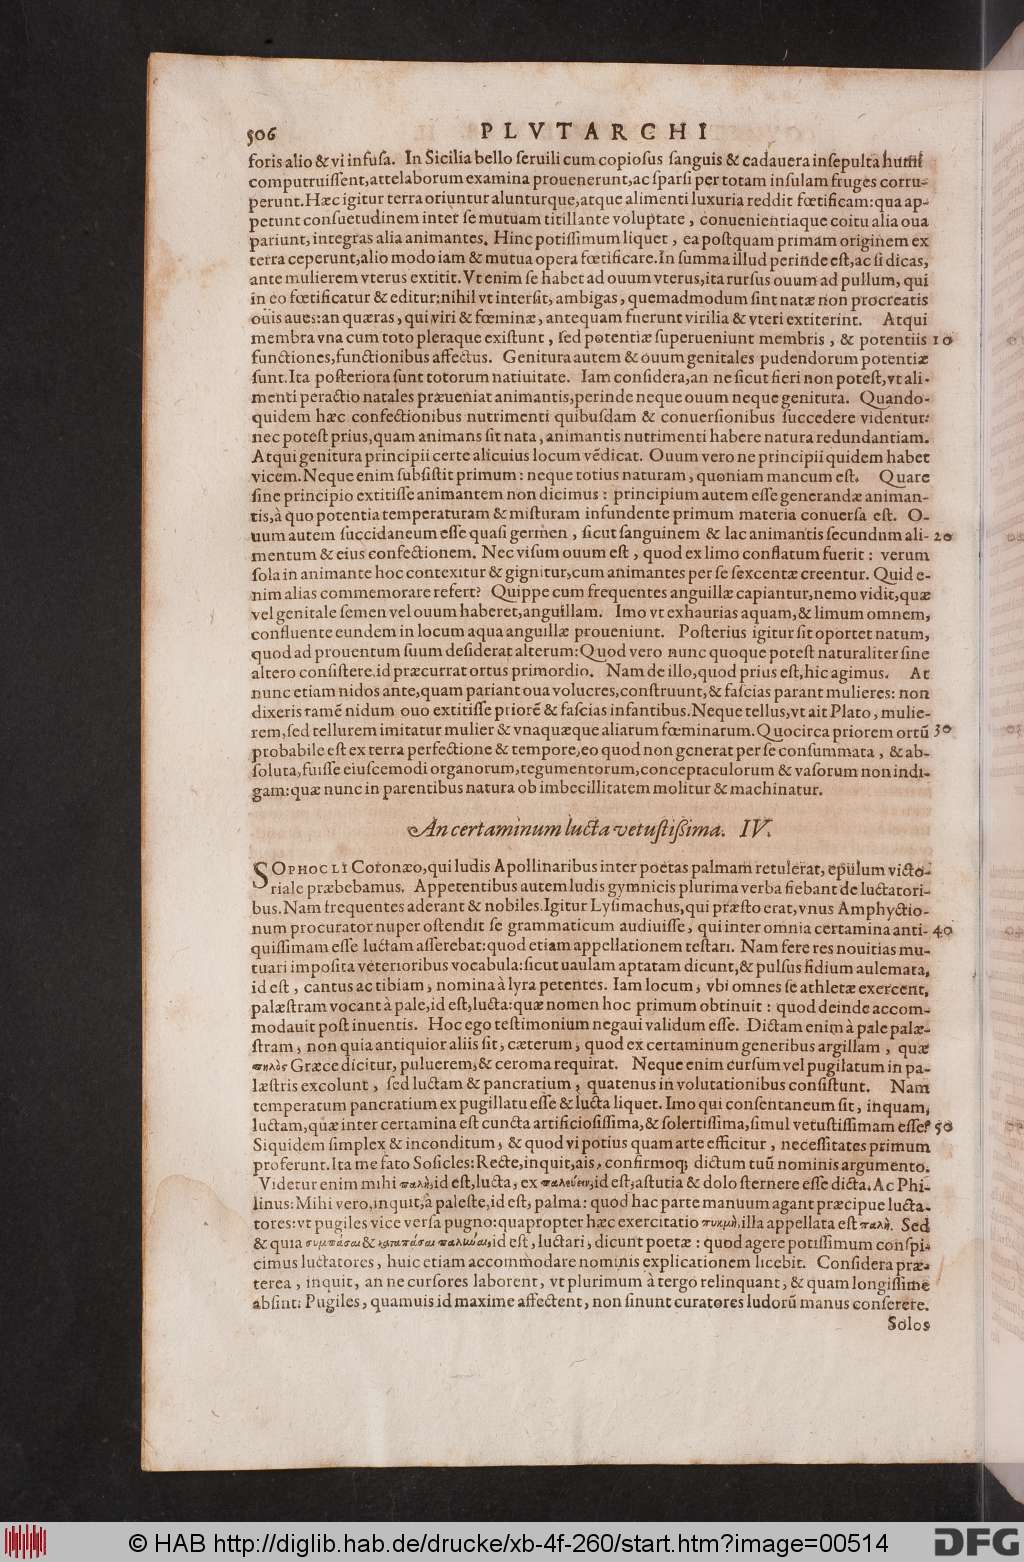 506 PLVTARCHI
foris alio & vi infusa. In Sicilia bello seruili cum copiosus sanguis & cadauera insepulta humi
computruissent, attelaborum examina prouenerunt, ac sparsi per totam insulam fruges corru-
perunt. Hæc igitur terra oriuntur alunturque, atque alimenti luxuria reddit fœtificam: qua ap-
petunt consuetudinem inter se mutuam titillante voluptate, conuenientiaque coitu alia oua
pariunt, integras alia animantes. Hinc potissimum liquet, ea postquam primam originem ex
terra ceperunt, alio modo iam & mutua opera fœtificare. In summa illud perinde est, ac si dicas,
ante mulierem vterus extitit. Vt enim se habet ad ouum vterus, ita rursus ouum ad pullum, qui
in eo fœtificatur & editur: nihil vt intersit, ambigas, quemadmodum sint natæ non procreatis
ouis aues: an quæras, qui viri & fœminæ, antequam fuerunt virilia & vteri extiterint. Atqui
membra vna cum toto pleraque existunt, sed potentiæ superueniunt membris, & potentiis 10
functiones, functionibus affectus. Genitura autem & ouum genitales pudendorum potentiæ
sunt. Ita posteriora sunt totorum natiuitate. Iam considera, an ne sicut fieri non potest, vt ali-
menti peractio natales præueniat animantis, perinde neque ouum neque genitura. Quando-
quidem hæc confectionibus nutrimenti quibusdam & conuersionibus succedere videntur:
nec potest prius, quam animans sit nata, animantis nutrimenti habere natura redundantiam.
Atqui genitura principii certe alicuius locum vēdicat. Ouum vero ne principii quidem habet
vicem. Neque enim subsistit primum: neque totius naturam, quoniam mancum est. Quare
sine principio extitisse animantem non dicimus: principium autem esse generandæ animan-
tis, à quo potentia temperaturam & misturam infundente primum materia conuersa est. O-
uum autem succidaneum esse quasi germen, sicut sanguinem & lac animantis secundum ali- 20
mentum & eius confectionem. Nec visum ouum est, quod ex limo conflatum fuerit: verum
sola in animante hoc contexitur & gignitur, cum animantes per se sexcentæ creentur. Quid e-
nim alias commemorare refert? Quippe cum frequentes anguillæ capiantur, nemo vidit, quæ
vel genitale semen vel ouum haberet, anguillam. Imo vt exhaurias aquam, & limum omnem,
confluente eundem in locum aqua anguillæ proueniunt. Posterius igitur sit oportet natum,
quod ad prouentum suum desiderat alterum: Quod vero nunc quoque potest naturaliter sine
altero consistere, id præcurrat ortus primordio. Nam de illo, quod prius est, hic agimus. At
nunc etiam nidos ante, quam pariant oua volucres, construunt, & fascias parant mulieres: non
dixeris tamē nidum ouo extitisse priorē & fascias infantibus. Neque tellus, vt ait Plato, mulie-
rem, sed tellurem imitatur mulier & vnaquæque aliarum fœminarum. Quocirca priorem ortū 30
probabile est ex terra perfectione & tempore, eo quod non generat per se consummata, & ab-
soluta, fuisse eiuscemodi organorum, tegumentorum, conceptaculorum & vasorum non indi-
gam: quæ nunc in parentibus natura ob imbecillitatem molitur & machinatur.
An certaminum lucta vetustissima. IV.
SOPHOCLI Coronæo, qui ludis Apollinaribus inter poetas palmam retulerat, epulum victo-
riale præbebamus. Appetentibus autem ludis gymnicis plurima verba fiebant de luctatori-
bus. Nam frequentes aderant & nobiles. Igitur Lysimachus, qui præsto erat, vnus Amphyctio-
num procurator nuper ostendit se grammaticum audiuisse, qui inter omnia certamina anti- 40
quissimam esse luctam asserebat: quod etiam appellationem testari. Nam fere res nouitias mu-
tuari imposita veterioribus vocabula: sicut uaulam aptatam dicunt, & pulsus fidium aulemata,
id est, cantus ac tibiam, nomina à lyra petentes. Iam locum, vbi omnes se athletæ exercent,
palæstram vocant à pale, id est, lucta: quæ nomen hoc primum obtinuit: quod deinde accom-
modauit post inuentis. Hoc ego testimonium negaui validum esse. Dictam enim à pale palæ-
stram, non quia antiquior aliis sit, cæterum, quod ex certaminum generibus argillam, quæ
πηλὸς Græce dicitur, puluerem, & ceroma requirat. Neque enim cursum vel pugilatum in pa-
læstris excolunt, sed luctam & pancratium, quatenus in volutationibus consistunt. Nam
temperatum pancratium ex pugillatu esse & lucta liquet. Imo qui consentaneum sit, inquam,
luctam, quæ inter certamina est cuncta artificiosissima, & solertissima, simul vetustissimam esse? 50
Siquidem simplex & inconditum, & quod vi potius quam arte efficitur, necessitates primum
proferunt. Ita me fato Sosicles: Recte, inquit, ais, confirmoq; dictum tuū nominis argumento.
Videtur enim mihi παλὴ, id est, lucta, ex παλεύειν, id est, astutia & dolo sternere esse dicta. Ac Phi-
linus: Mihi vero, inquit, à paleste, id est, palma: quod hac parte manuum agant præcipue lucta-
tores: vt pugiles vice versa pugno: quapropter hæc exercitatio πυγμὴ, illa appellata est παλὴ. Sed
& quia συμπάσαι & καταπάσαι παλῦναι, id est, luctari, dicunt poetæ: quod agere potissimum conspi-
cimus luctatores, huic etiam accommodare nominis explicationem licebit. Considera præ-
terea, inquit, an ne cursores laborent, vt plurimum à tergo relinquant, & quam longissime
absint: Pugiles, quamuis id maxime affectent, non sinunt curatores ludorū manus conserere.
Solos
© HAB http://diglib.hab.de/drucke/xb-4f-260/start.htm?image=00514 DFG